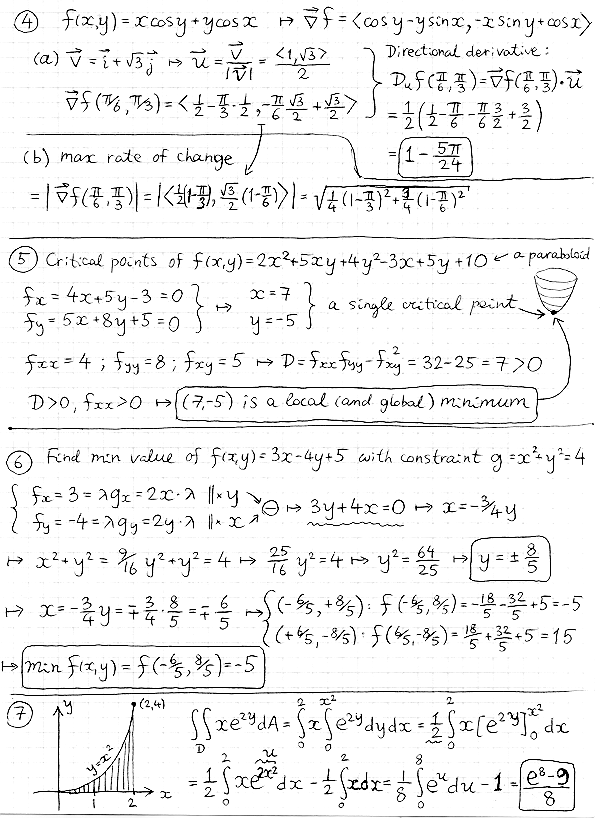 ④ f(x,y) = x cos y + y cos x ↦ ∇⃗f = ⟨cos y − y sin x, −x sin y + cos x⟩
(a) V⃗ = i⃗ + √3 j⃗ ↦ u⃗ = V⃗/|V⃗| = ⟨1,√3⟩/2
∇⃗f(π/6, π/3) = ⟨1/2 − π/3 · 1/2, −π/6 √3/2 + √3/2⟩
Directional derivative:
Duf(π/6, π/3) = ∇⃗f(π/6, π/3) · u⃗
= 1/2 (1/2 − π/6 − π/6 3/2 + 3/2)
= 1 − 5π/24
(b) max rate of change
= |∇⃗f(π/6, π/3)| = |⟨1/2(1−π/3), √3/2(1−π/6)⟩| = √(1/4(1−π/3)² + 3/4(1−π/6)²)
⑤ Critical points of f(x,y) = 2x²+5xy+4y²−3x+5y+10 ← a paraboloid
fx = 4x+5y−3 = 0 ↦ x = 7
fy = 5x+8y+5 = 0 y = −5
a single critical point
fxx = 4 ; fyy = 8 ; fxy = 5 ↦ D = fxx fyy − fxy² = 32−25 = 7 > 0
D>0, fxx>0 ↦ (7,−5) is a local (and global) minimum
⑥ Find min value of f(x,y) = 3x−4y+5 with constraint g = x²+y² = 4
fx = 3 = λgx = 2x·λ ‖×y
fy = −4 = λgy = 2y·λ ‖×x
⊖ ↦ 3y+4x=0 ↦ x = −3/4 y
↦ x²+y² = 9/16 y²+y² = 4 ↦ 25/16 y² = 4 ↦ y² = 64/25 ↦ y = ± 8/5
↦ x = −3/4 y = ∓ 3/4 · 8/5 = ∓ 6/5 ↦ (−6/5, +8/5): f(−6/5, 8/5) = −18/5 − 32/5 + 5 = −5
(+6/5, −8/5): f(6/5, −8/5) = 18/5 + 32/5 + 5 = 15
↦ min f(x,y) = f(−6/5, 8/5) = −5
⑦ y (2,4)
y=x²
1 2 x
∬D xe^(2y) dA = ∫₀² x ∫₀^(x²) e^(2y) dy dx = 1/2 ∫₀² x [e^(2y)]₀^(x²) dx
u
= 1/2 ∫₀² xe^(2x²) dx − 1/2 ∫₀² x dx = 1/8 ∫₀⁸ e^u du − 1 = (e⁸−9)/8